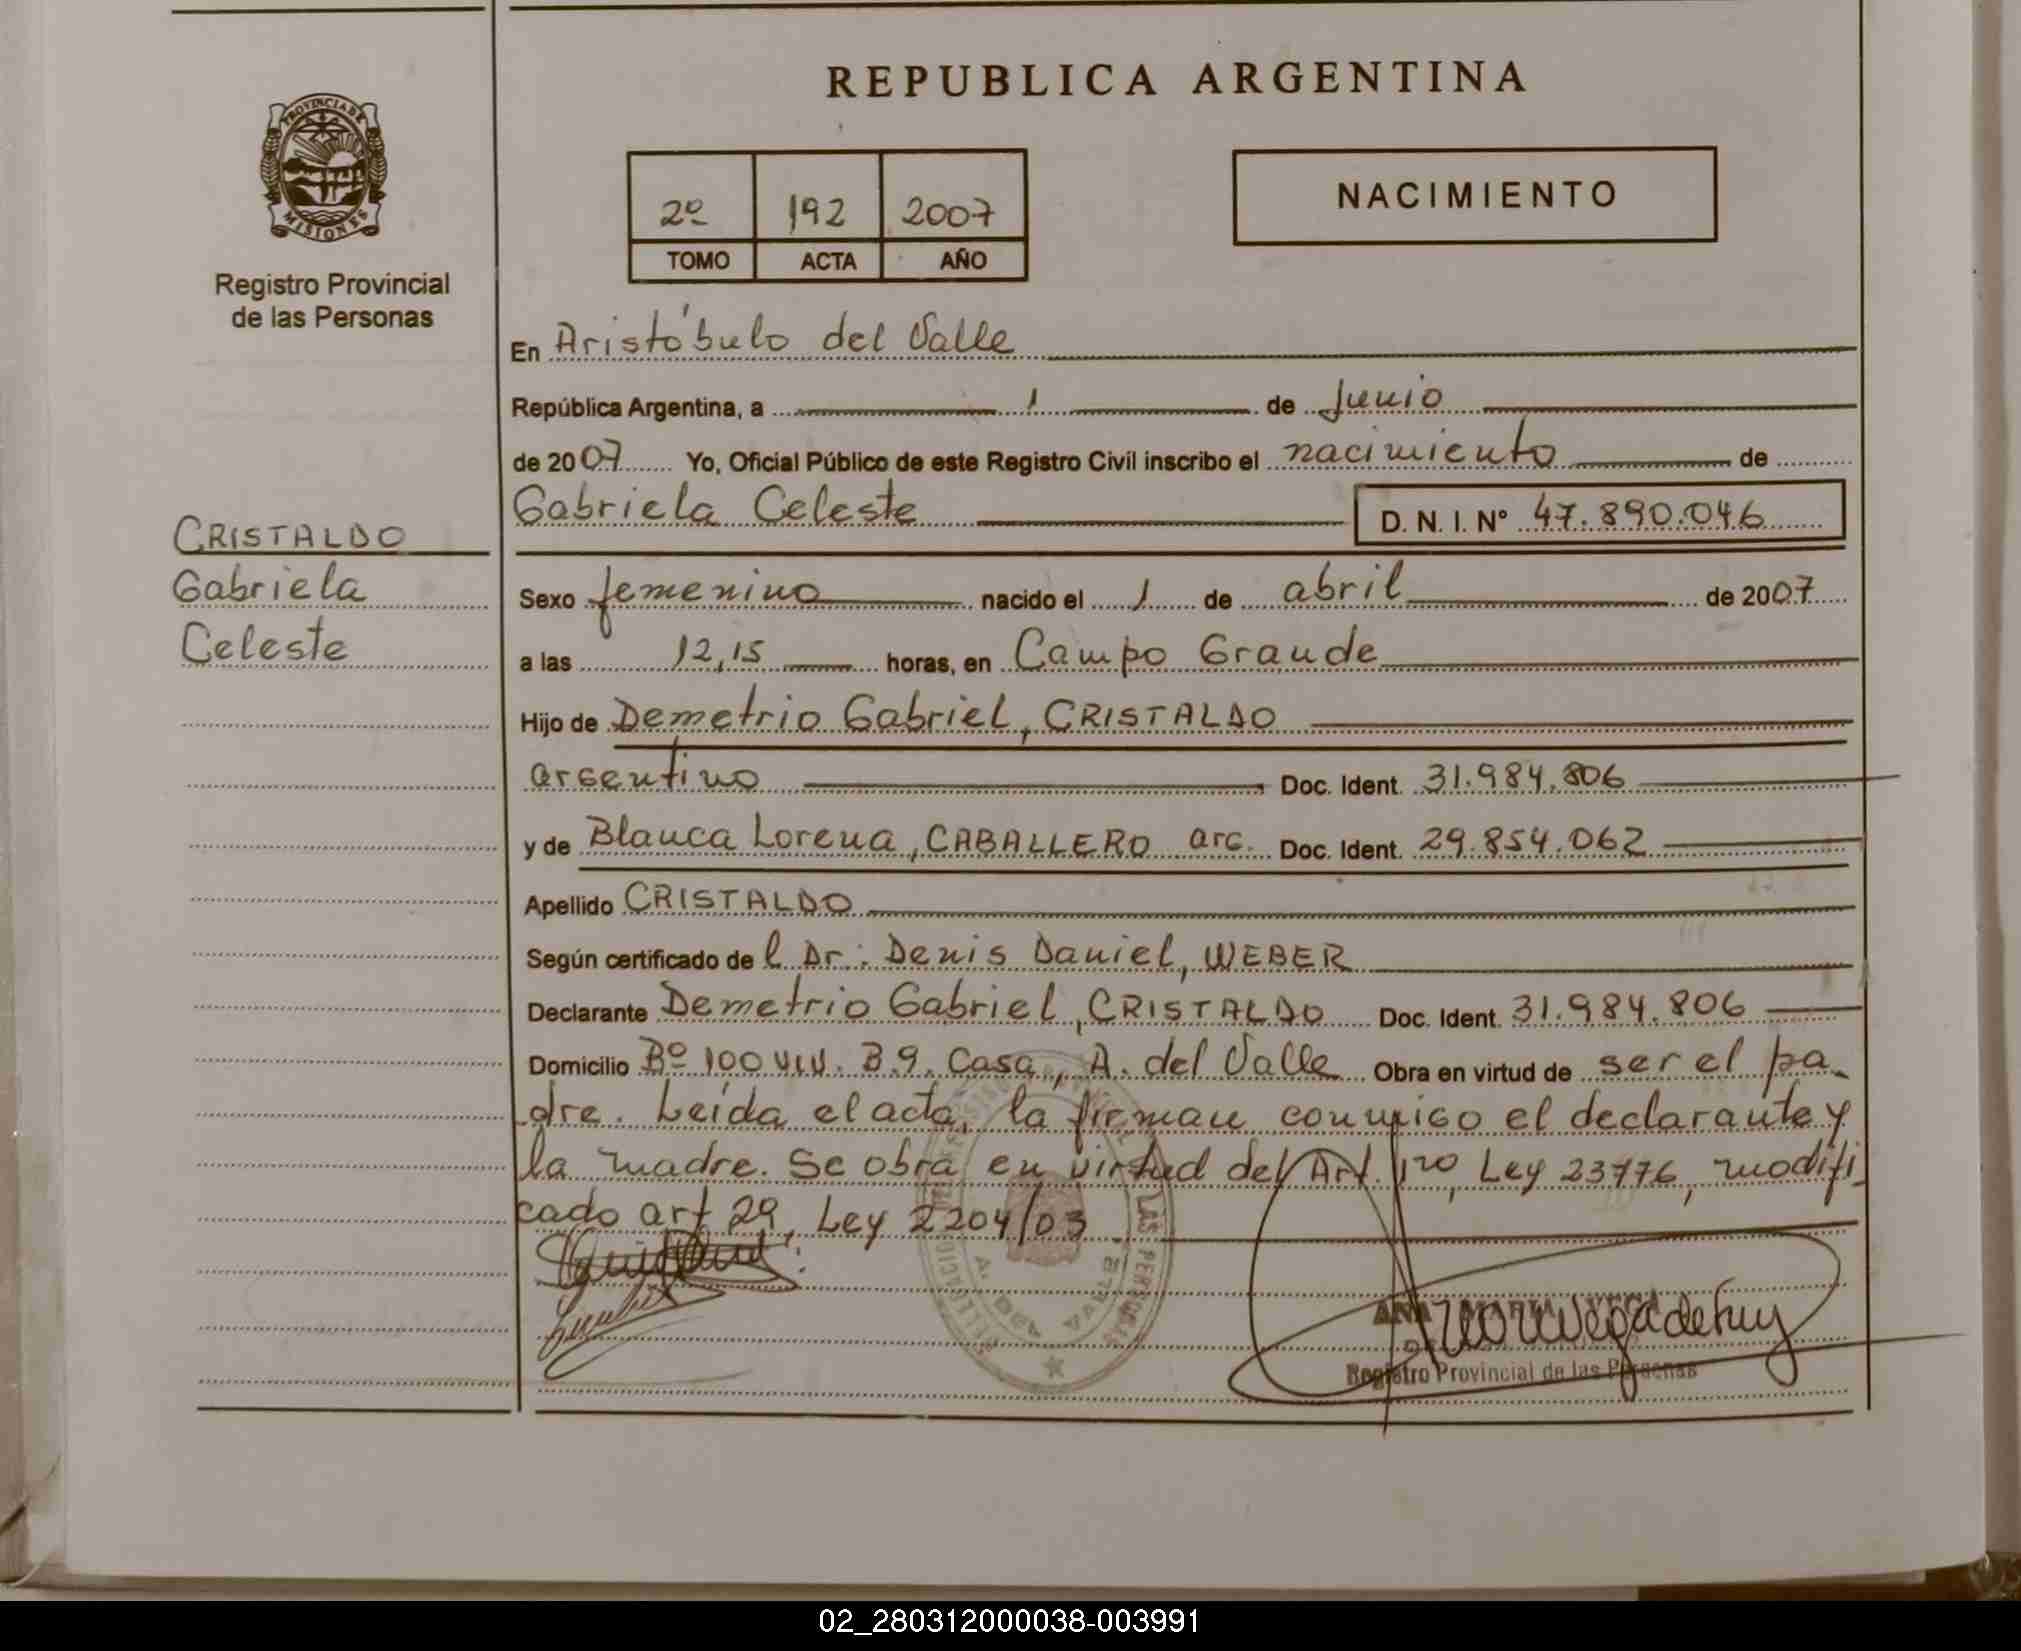 REPUBLICA ARGENTINA
PROVINCIA DE
MISIONES
Registro Provincial
de las Personas
2º 192 2007
TOMO ACTA AÑO
NACIMIENTO
En Aristóbulo del Valle
República Argentina, a 1 de Junio
de 2007 Yo, Oficial Público de este Registro Civil inscribo el nacimiento de
Gabriela Celeste D. N. I. Nº 47.890.046
CRISTALDO
Gabriela
Celeste
Sexo femenino nacido el 1 de abril de 2007
a las 12,15 horas, en Campo Grande
Hijo de Demetrio Gabriel, CRISTALDO
argentino Doc. Ident. 31.984.806
y de Blanca Lorena, CABALLERO arg. Doc. Ident. 29.854.062
Apellido CRISTALDO
Según certificado de l Dr: Denis Daniel, WEBER
Declarante Demetrio Gabriel, CRISTALDO Doc. Ident. 31.984.806
Domicilio Bº 100 viv. B.9. Casa, A. del Valle Obra en virtud de ser el pa-
dre. Leída el acta, la firman conmigo el declarante y
la madre. Se obra en virtud del Art. 1ro, Ley 23776, modifi-
cado art 29, Ley 2204/03
LAS PERSONAS
A. DEL VALLE
ANA
Registro Provincial de las Personas
02_280312000038-003991